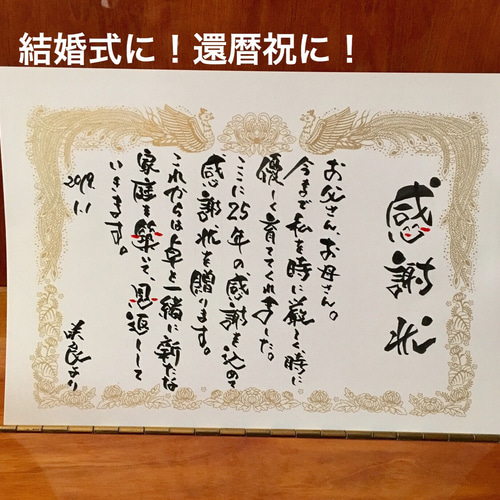 結婚式に！還暦祝に！
感謝状
お父さん、お母さん。
今まで私を時に厳しく時に
優しく育ててくれました。
ここに25年の感謝を込めて
感謝状を贈ります。
これからは卓と一緒に新たな
家庭を築いて、恩返しして
いきます。
2019.1.1
咲良より